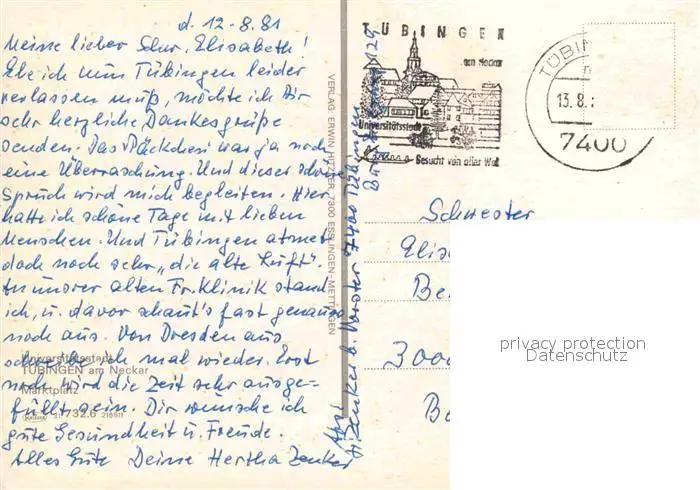 d. 12-8.81
Meine liebe Schw. Elisabeth!
Ehe ich nun Tübingen leider
verlassen muß, möchte ich Dir
sehr herzliche Dankesgrüße
senden. Das Päckchen war ja noch
eine Überraschung. Und dieser schöne
Spruch wird mich begleiten. Hier
hatte ich schöne Tage mit lieben
Menschen. Und Tübingen atmet
doch noch sehr „die alte Luft".
In unserer alten Fr. Klinik stand
ich, u. davor schaut's fast genauso
noch aus. Von Dresden aus
schreibe ich mal wieder. Erst
noch wird die Zeit sehr ausge-
füllt sein. Dir wünsche ich
gute Gesundheit u. Freude.
Alles Gute Deine Hertha Zenker
Universitätsstadt
TÜBINGEN am Neckar
Marktplatz
732.6
VERLAG ERWIN HITZLER, 7300 ESSLINGEN-METTINGEN
Abs.:
H. Zenker b. 7400 Tübingen
129
TÜBINGEN
am Neckar
Universitätsstadt
Besucht von aller Welt
TÜBIN
13.8.
7400
Schwester
Elis
Be
3000
Be
privacy protection
Datenschutz